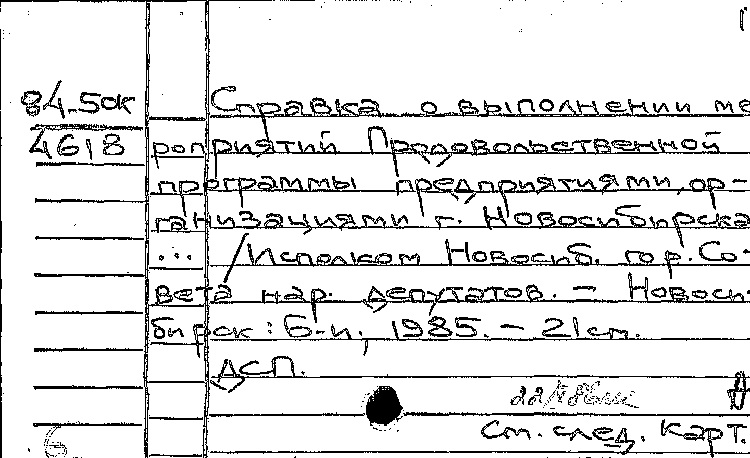 84-5ок Справка о выполнении ме
4618 роприятий Продовольственной
программы предприятиями, ор-
ганизациями г. Новосибирска
... / Исполком Новосиб. гор. Со-
вета нар. депутатов. - Новоси-
бирск: Б.и., 1985. - 21 см.
ДСП.
См. след. карт.